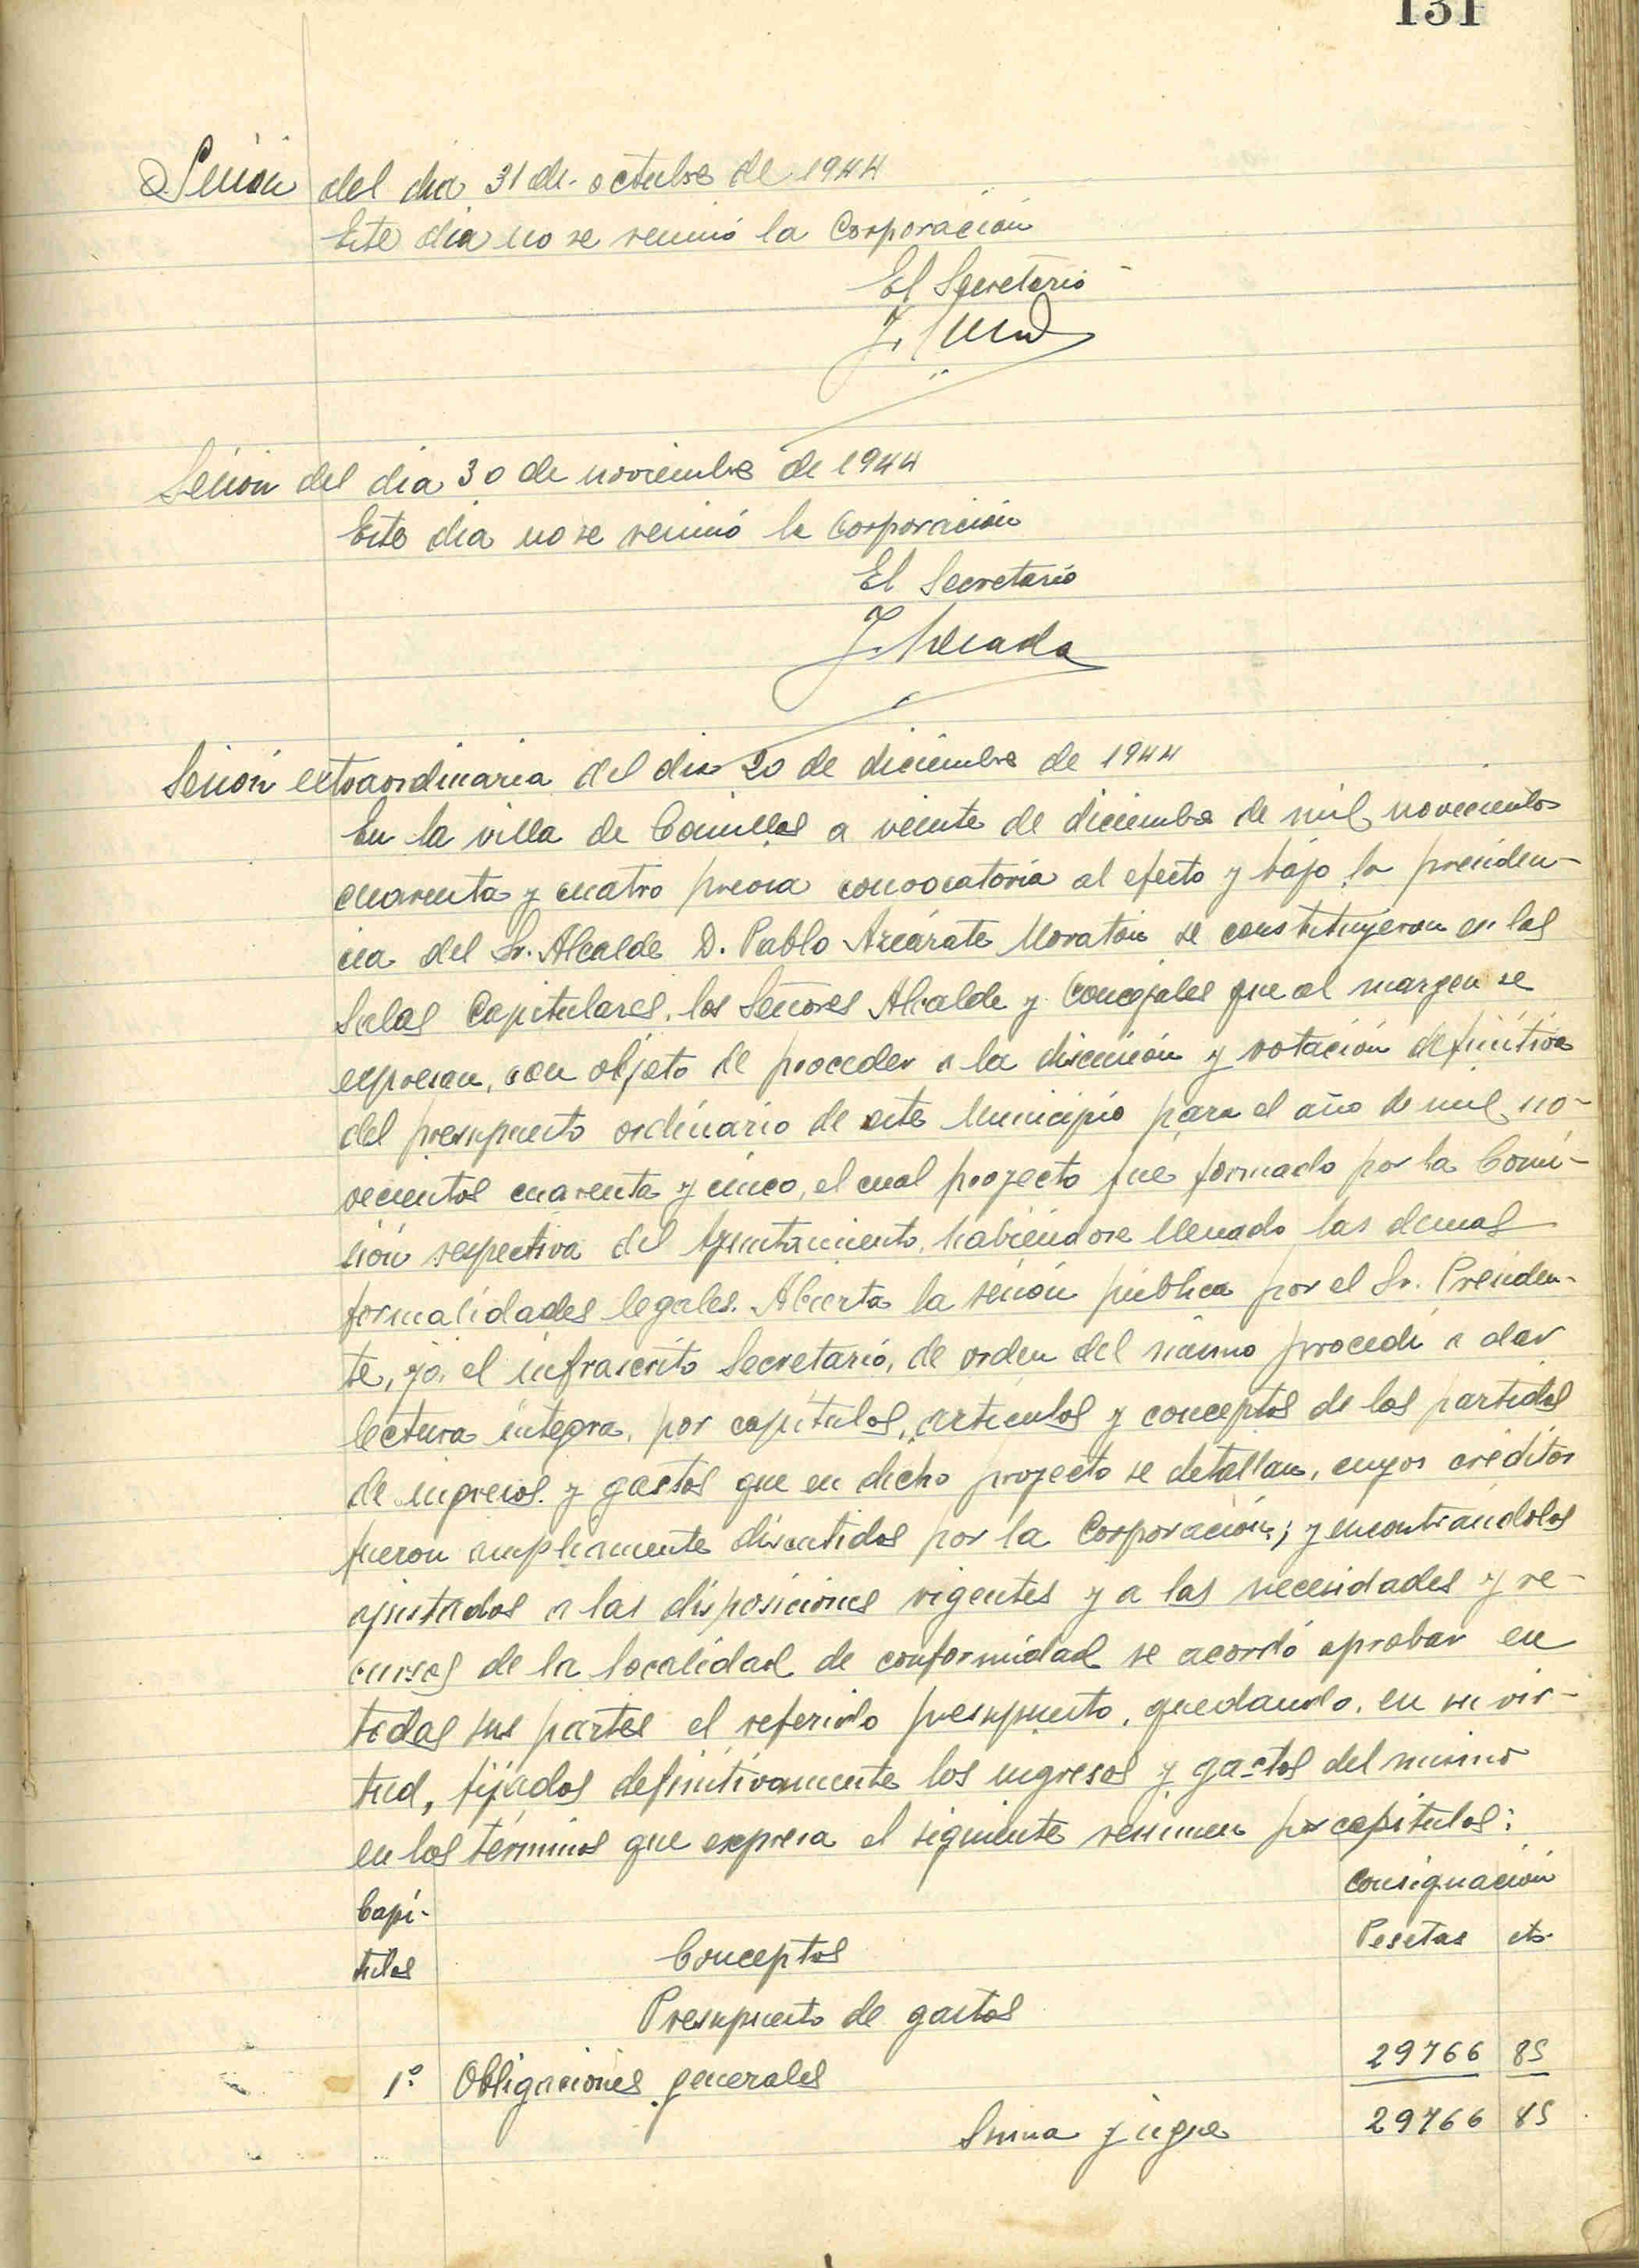 131
Sesión del dia 31 de octubre de 1944
Este dia no se reunió la Corporación
El Secretario
J.
Sesión del dia 30 de noviembre de 1944
Este dia no se reunió la Corporación
El Secretario
J.
Sesión extraordinaria del dia 20 de diciembre de 1944
En la villa de Canillas a veinte de diciembre de mil novecientos
cuarenta y cuatro previa convocatoria al efecto y bajo la presiden-
cia del Sr. Alcalde D. Pablo Azcárate Moratón se constituyeron en las
Salas Capitulares, los Señores Alcalde y Concejales que al margen se
expresan, con objeto de proceder a la discusión y votación definitiva
del presupuesto ordinario de este Municipio para el año de mil no-
vecientos cuarenta y cinco, el cual proyecto fue formado por la Comi-
sión respectiva del Ayuntamiento, habiéndose llenado las demas
formalidades legales. Abierta la sesión pública por el Sr. Presiden-
te, yo, el infrascrito Secretario, de orden del mismo procedí a dar
lectura integra, por capítulos, artículos y conceptos de las partidas
de ingresos y gastos que en dicho proyecto se detallan, cuyos créditos
fueron ampliamente discutidos por la Corporación; y encontrándolos
ajustados a las disposiciones vigentes y a las necesidades y re-
cursos de la localidad de conformidad se acordó aprobar en
todas sus partes el referido presupuesto, quedando, en su vir-
tud, fijados definitivamente los ingresos y gastos del mismo
en los términos que expresa el siguiente resumen por capítulos:
Capí- Consignación
tulos Conceptos Pesetas cts.
Presupuesto de gastos
1º Obligaciones generales 29766 85
Suma y sigue 29766 85